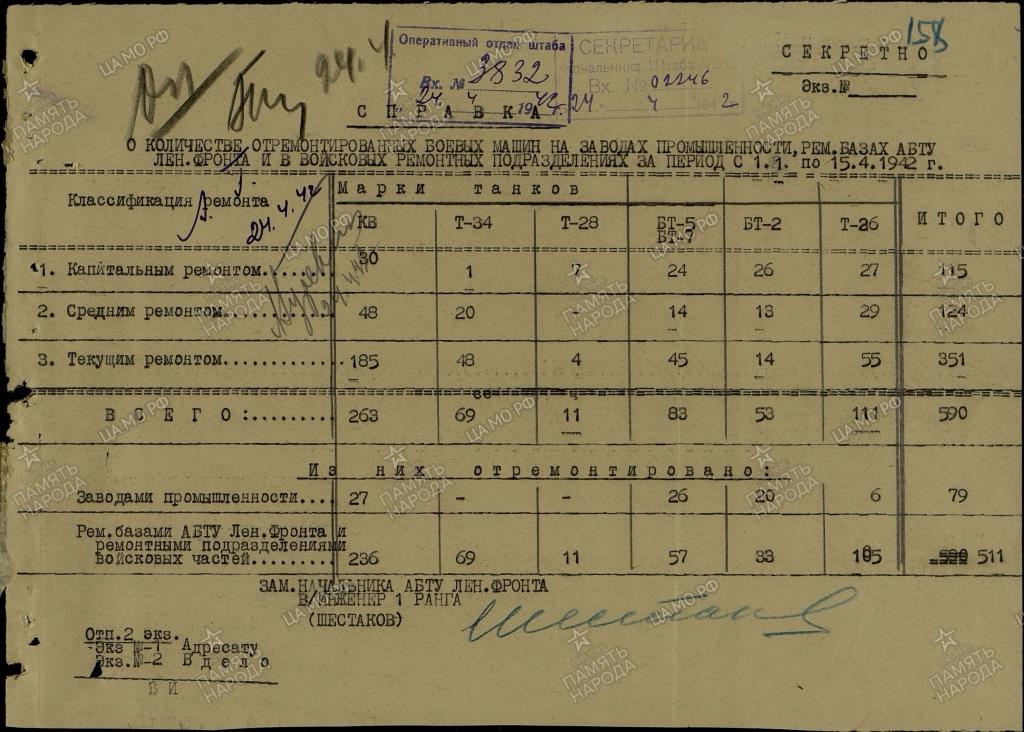 158
24.4
Оперативный отдел штаба
Вх. № 3832
24. 4 1942 г.
СЕКРЕТАРИАТ
Начальника Штаба
Вх. № 02246
24 4 2
СЕКРЕТНО
Экз.№
СПРАВКА
О КОЛИЧЕСТВЕ ОТРЕМОНТИРОВАННЫХ БОЕВЫХ МАШИН НА ЗАВОДАХ ПРОМЫШЛЕННОСТИ, РЕМ.БАЗАХ АБТУ
ЛЕН.ФРОНТА И В ВОЙСКОВЫХ РЕМОНТНЫХ ПОДРАЗДЕЛЕНИЯХ ЗА ПЕРИОД С 1.1. по 15.4.1942 г.
Классификация ремонта Марки танков ИТОГО
КВ Т-34 Т-28 БТ-5 БТ-7 БТ-2 Т-26
24.4.42
1. Капитальным ремонтом........ 30 1 7 24 26 27 115
2. Средним ремонтом........... 48 20 - 14 13 29 124
3. Текущим ремонтом............ 185 48 4 45 14 55 351
ВСЕГО:........ 263 69 11 83 53 111 590
Из них отремонтировано:
Заводами промышленности.... 27 - - 26 20 6 79
Рем.базами АБТУ Лен.Фронта и
ремонтными подразделениями
войсковых частей.......... 236 69 11 57 33 105 590 511
ЗАМ.НАЧАЛЬНИКА АБТУ ЛЕН.ФРОНТА
В/ИНЖЕНЕР 1 РАНГА
(ШЕСТАКОВ) Шестаков
Отп.2 экз.
Экз №-1 Адресату
Экз.№-2 В дело
ВИ
ПАМЯТЬ НАРОДА
ЦАМО.РФ